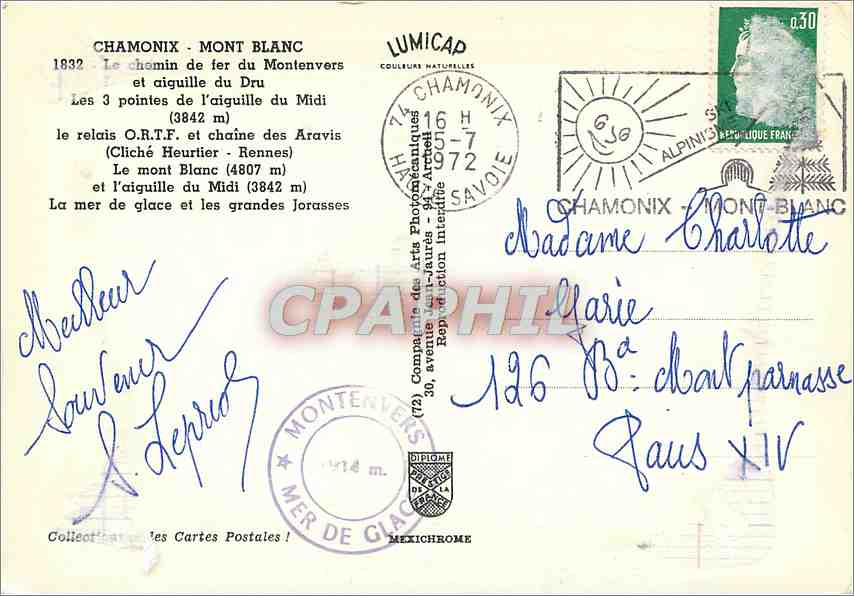 CHAMONIX - MONT BLANC
1832 - Le chemin de fer du Montenvers
et aiguille du Dru
Les 3 pointes de l'aiguille du Midi
(3842 m)
le relais O.R.T.F. et chaîne des Aravis
(Cliché Heurtier - Rennes)
Le mont Blanc (4807 m)
et l'aiguille du Midi (3842 m)
La mer de glace et les grandes Jorasses
LUMICAP
COULEURS NATURELLES
74 CHAMONIX
16 H
5-7
1972
SAVOIE
0.30
REPUBLIQUE
SKI
ALPINISME
CHAMONIX - MONT-BLANC
(72) Compagnie des Arts Photomécaniques
30, avenue Jean-Jaurès - 94 - Arcueil
Reproduction Interdite
Madame Charlotte
Marie
126 Bd Montparnasse
Paris XIV
Meilleur
Souvenir
CPAPHIL
MONTENVERS
m.
MER DE GLACE
DIPLOME
PRESTIGE
DE LA
FRANCE
MEXICHROME
les Cartes Postales !